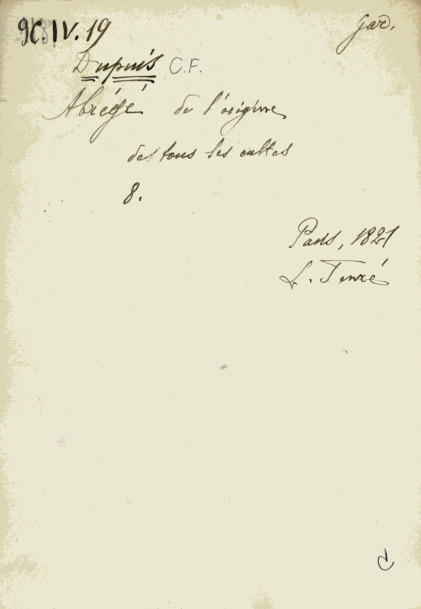 9C.IV.19
gar.
Dupuis C.F.
Abrégé de l'origine
de tous les cultes
8.
Paris, 1821
L. Tenré
C